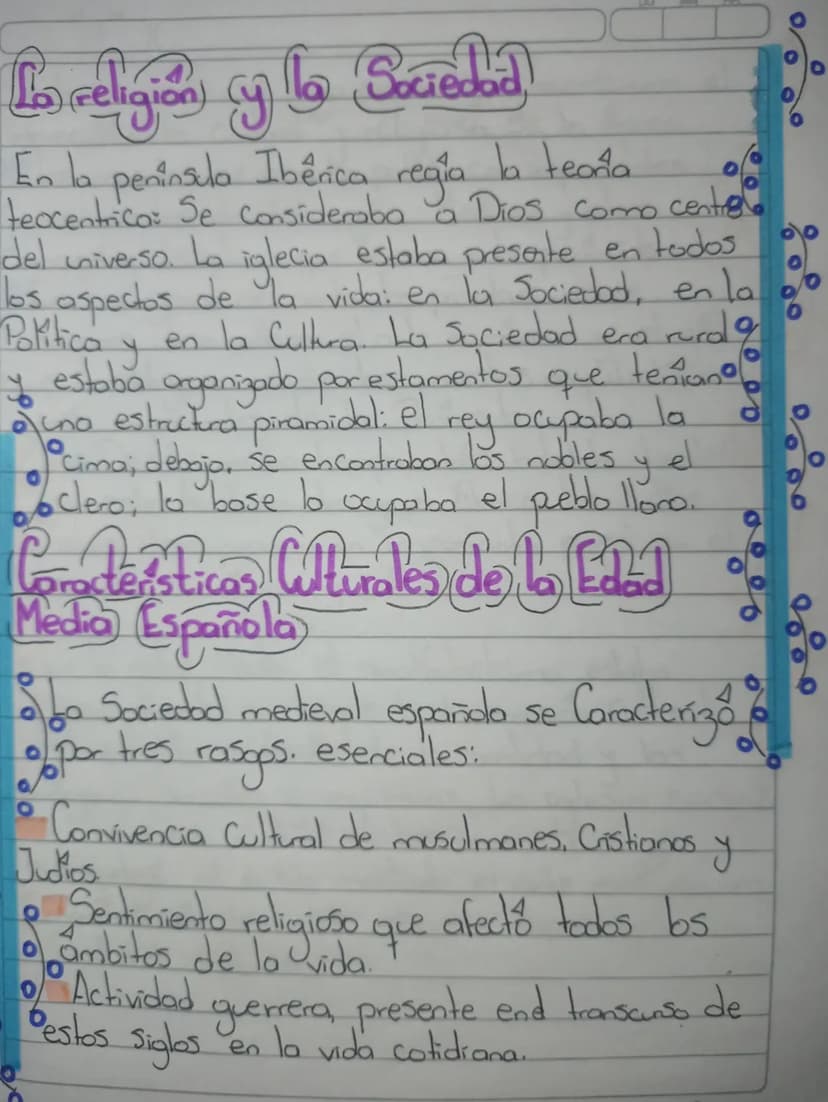 La religión y la Sociedad
En la península Ibérica regía la teoría
teocentrica: Se consideraba a Dios como centro
del universo. La iglecia estaba presente en todos
los aspectos de la vida: en la Sociedad, en la
Política y en la Cultura. La Sociedad era rural
y estaba organizado por estamentos que tenían
una estructura piramidal: el rey ocupaba la
cima; debajo, se encontraban los nobles y el
clero; la base lo ocupaba el pueblo llano.
Características Culturales de la Edad
Media Española
La Sociedad medieval española se Caracterizó
por tres rasgos. esenciales:
Convivencia Cultural de musulmanes, Cristianos y
Judíos.
Sentimiento religioso que afectó todos los
ámbitos de la vida.
Actividad guerrera, presente end transcurso de
estos siglos en la vida cotidiana.